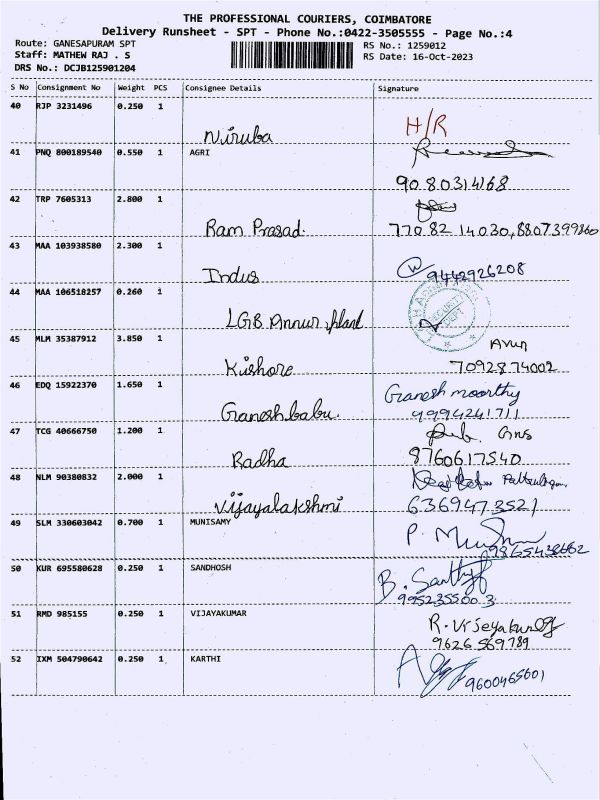 THE PROFESSIONAL COURIERS, COIMBATORE
Delivery Runsheet - SPT - Phone No.:0422-3505555 - Page No.:4
Route: GANESAPURAM SPT
RS No.: 1259012
Staff: MATHEW RAJ . S
RS Date: 16-Oct-2023
DRS No.: DCJB125901204
S No Consignment No Weight PCS Consignee Details Signature
40 RJP 3231496 0.250 1
Niruba H/R
41 PNQ 800189540 0.550 1 AGRI
9080314168
42 TRP 7605313 2.800 1
Ram Prasad. 77082 14030, 8807399860
43 MAA 103938580 2.300 1
Indus 9442926208
44 MAA 106518257 0.260 1
LGB Annur plant SECURITY DEPT
45 MLM 35387912 3.850 1
Arun
Kishore 7092874002
46 EDQ 15922370 1.650 1
Ganesh moorthy
Ganesh babu. 9994241711
47 TCG 40666750 1.200 1
Radha 8760617540
48 NLM 90380832 2.000 1
Vijayalakshmi 6369473521
49 SLM 330603042 0.700 1 MUNISAMY
P. Mu
50 KUR 695580628 0.250 1 SANDHOSH
B. Santhosh
9952355003
51 RMD 985155 0.250 1 VIJAYAKUMAR
R. Vijeyakumar
9626569789
52 IXM 504790642 0.250 1 KARTHI
9600465601